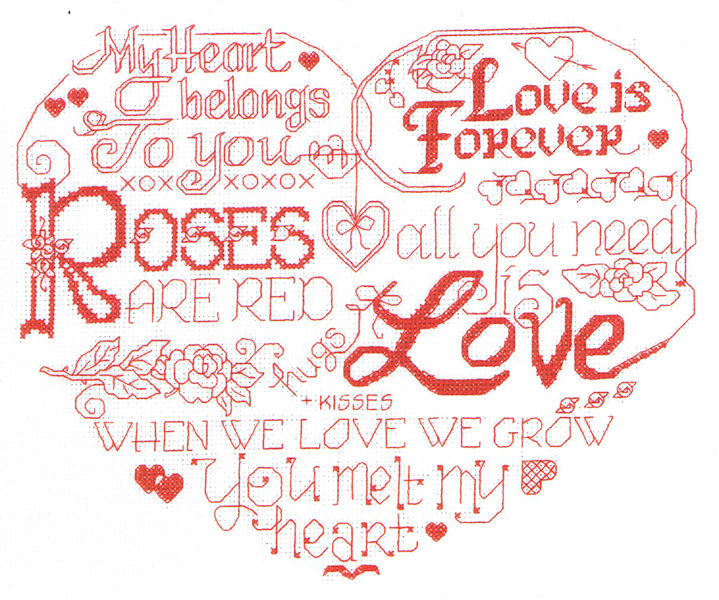 My Heart
belongs
To you
XOXOX XOXOX
Love is
Forever
ROSES
ARE RED
all you need
is
Love
hugs
+ KISSES
WHEN WE LOVE WE GROW
You melt my
heart